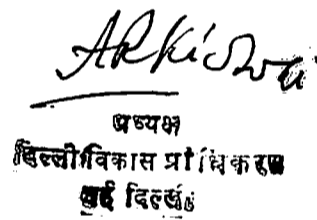 ARKidwai
अध्यक्ष
दिल्ली विकास प्राधिकरण
नई दिल्ली